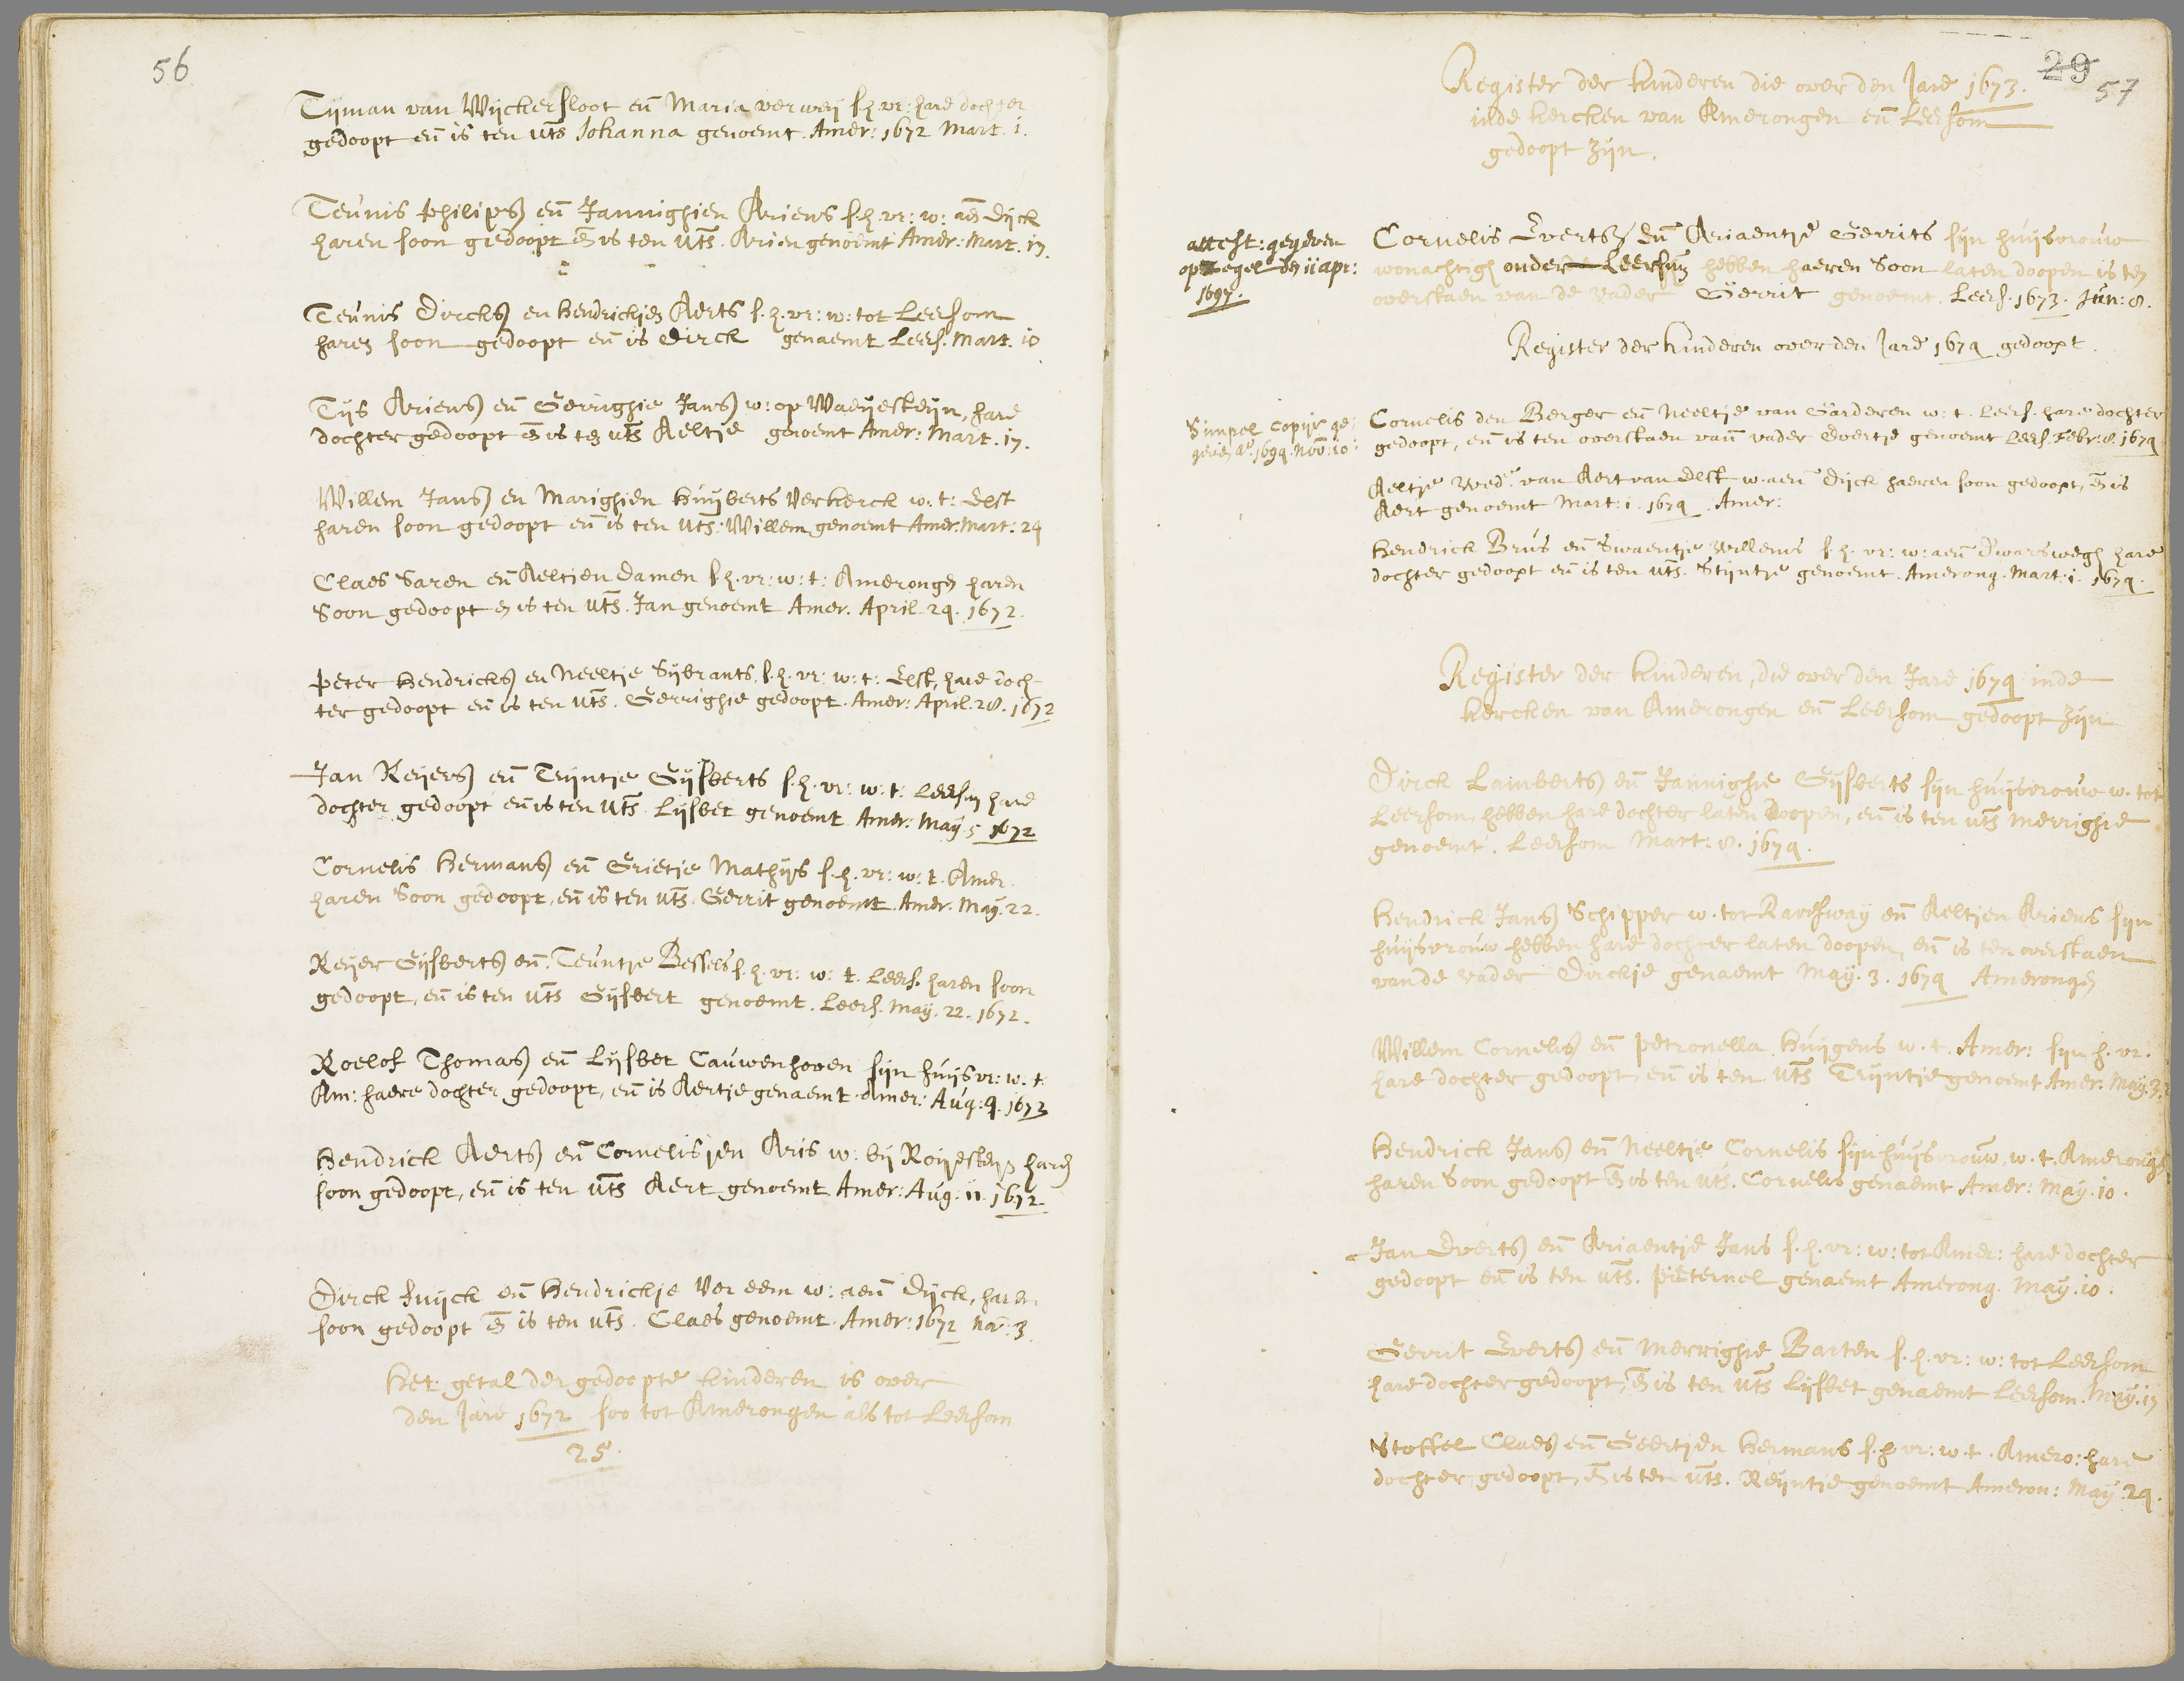 56
Tijman van Wijckersloot eñ Maria verweij s. h. vr: hare dochter
gedoopt eñ is ten uts Johanna genoemt. Amer: 1672 Mart. 1.
Teunis Philips eñ Jannighien Ariens s. h. vr: w: aẽ Dijck
haren soon gedoopt eñ is ten uts. Arien genoemt Amer: Mart. 17.
Teunis Dircks en Hendrickjen Aerts s. h. vr: w: tot Leersom
haren soon gedoopt eñ is Dirck genaemt Leers. Mart. 10
Tijs Ariens eñ Gerrighie Jans w: op Waeijesteijn, hare
dochter gedoopt eñ is ten uts Aeltje genoemt Amer: Mart. 17.
Willem Jans en Marighien Huijberts Verkerck w: t: Elst
haren soon gedoopt eñ is ten uts: Willem genoemt Amer: Mart: 24
Claes Saren eñ Aeltien Damen s. h. vr: w: t: Amerongen haren
Soon gedoopt en is ten uts. Jan genoemt Amer. April 24. 1672.
Peter Hendricks en Neeltje Sijbrants, s. h. vr: w: t: Elst, hare doch-
ter gedoopt eñ is ten uts. Gerrighie gedoopt. Amer: April. 28. 1672
Jan Reijers eñ Trijntje Gijsberts s. h. vr: w: t: Leersum hare
dochter gedoopt eñ is ten uts Lijsbet genoemt Amer: May 5 1672
Cornelis Hermans eñ Grietje Mathijs s. h. vr: w: t. Amer.
haren Soon gedoopt, eñ is ten uts. Gerrit genoemt. Amer. May. 22.
Reijer Gijsberts eñ: Teuntje Bessels s. h. vr: w: t. Leers. haren soon
gedoopt, eñ is ten uts Gijsbert genoemt. Leers. May. 22. 1672.
Roelof Thomas eñ Lijsbet Cauwenhoven sijn huijsvr: w. t:
Am: haere dochter gedoopt, eñ is Aertje genaemt. Amer: Aug: 4. 1672
Hendrick Aerts eñ Cornelisjen Aris w: bij Roijesteyn haren
soon gedoopt, eñ is ten uts Aert genoemt Amer: Aug: 11. 1672.
Dirck Fuijck eñ Hendrickje Ver eem w: aeñ Dijck, haren
soon gedoopt eñ is ten uts. Claes genoemt. Amer: 1672 Nov: 3
Het getal der gedoopte kinderen is over
den jare 1672 soo tot Amerongen als tot Leersom
25.
29
57
Register der kinderen die over den Jare 1673.
inde kercken van Amerongen eñ Leersom
gedoopt zijn.
attest: gegeven
op zegel den 11 apr:
1697.
Cornelis Everts eñ Ariaentje Gerrits sijn huijsvrouw
wonachtigh onder Leersum hebben haeren Soon laten doopen is ten
overstaen van de vader Gerrit genoemt. Leers. 1673. Jun: 8.
Register der kinderen over den Jare 1674 gedoopt.
Simpel copije ge-
geven aº 1694. Nov: 10:
Cornelis den Berger eñ Neeltje van Garderen w: t. Leers. hare dochter
gedoopt, eñ is ten overstaen vañ vader Evertje genoemt Leers. Febr: 8. 1674
Aeltje Wedᵉ van Aert van Elst w: aeñ Dijck haeren soon gedoopt, eñ is
Aert genoemt Mart: 1. 1674 Amer:
Hendrick Brus eñ Swaentje Willems s. h. vr: w: aeñ Dwarswegh hare
dochter gedoopt eñ is ten uts. Stijntje genoemt. Amerong. Mart: 1. 1674.
Register der kinderen, die over den Jare 1674 inde
kercken van Amerongen eñ Leersom gedoopt zijn
Dirck Lamberts eñ Jannighe Gijsberts sijn huijsvrouw w. tot
Leersom, hebben hare dochter laten doopen, eñ is ten uts Merrighie
genoemt. Leersom Mart: 8. 1674.
Hendrick Jans Schipper w. tot Ravesway eñ Aeltjen Ariens sijn
huijsvrouw hebben hare dochter laten doopen, eñ is ten overstaen
van de vader Dirckje genaemt May. 3. 1674 Amerongen
Willem Cornelis eñ Petronella Huijgens w. t. Amer: sijn h. vr.
hare dochter gedoopt, eñ is ten uts Trijntje genoemt Amer: May. 3.
Hendrick Jans eñ Neeltje Cornelis sijn huijsvrouw, w. t. Amerongen
haren Soon gedoopt eñ is ten uts. Cornelis genaemt Amer: May. 10.
Jan Everts eñ Ariaentje Jans s. h. vr: w: tot Amer: hare dochter
gedoopt eñ is ten uts. Pieternel genaemt Amerong. May. 10.
Gerrit Everts eñ Merrighie Barten s. h. vr: w: tot Leersom
hare dochter gedoopt, eñ is ten uts Lijsbet genaemt Leersom. May. 17
Stoffel Claes eñ Geertjen Hermans s. h vr: w. t. Amero: hare
dochter gedoopt, eñ is ten uts. Reijntje genoemt Ameron: May. 24.